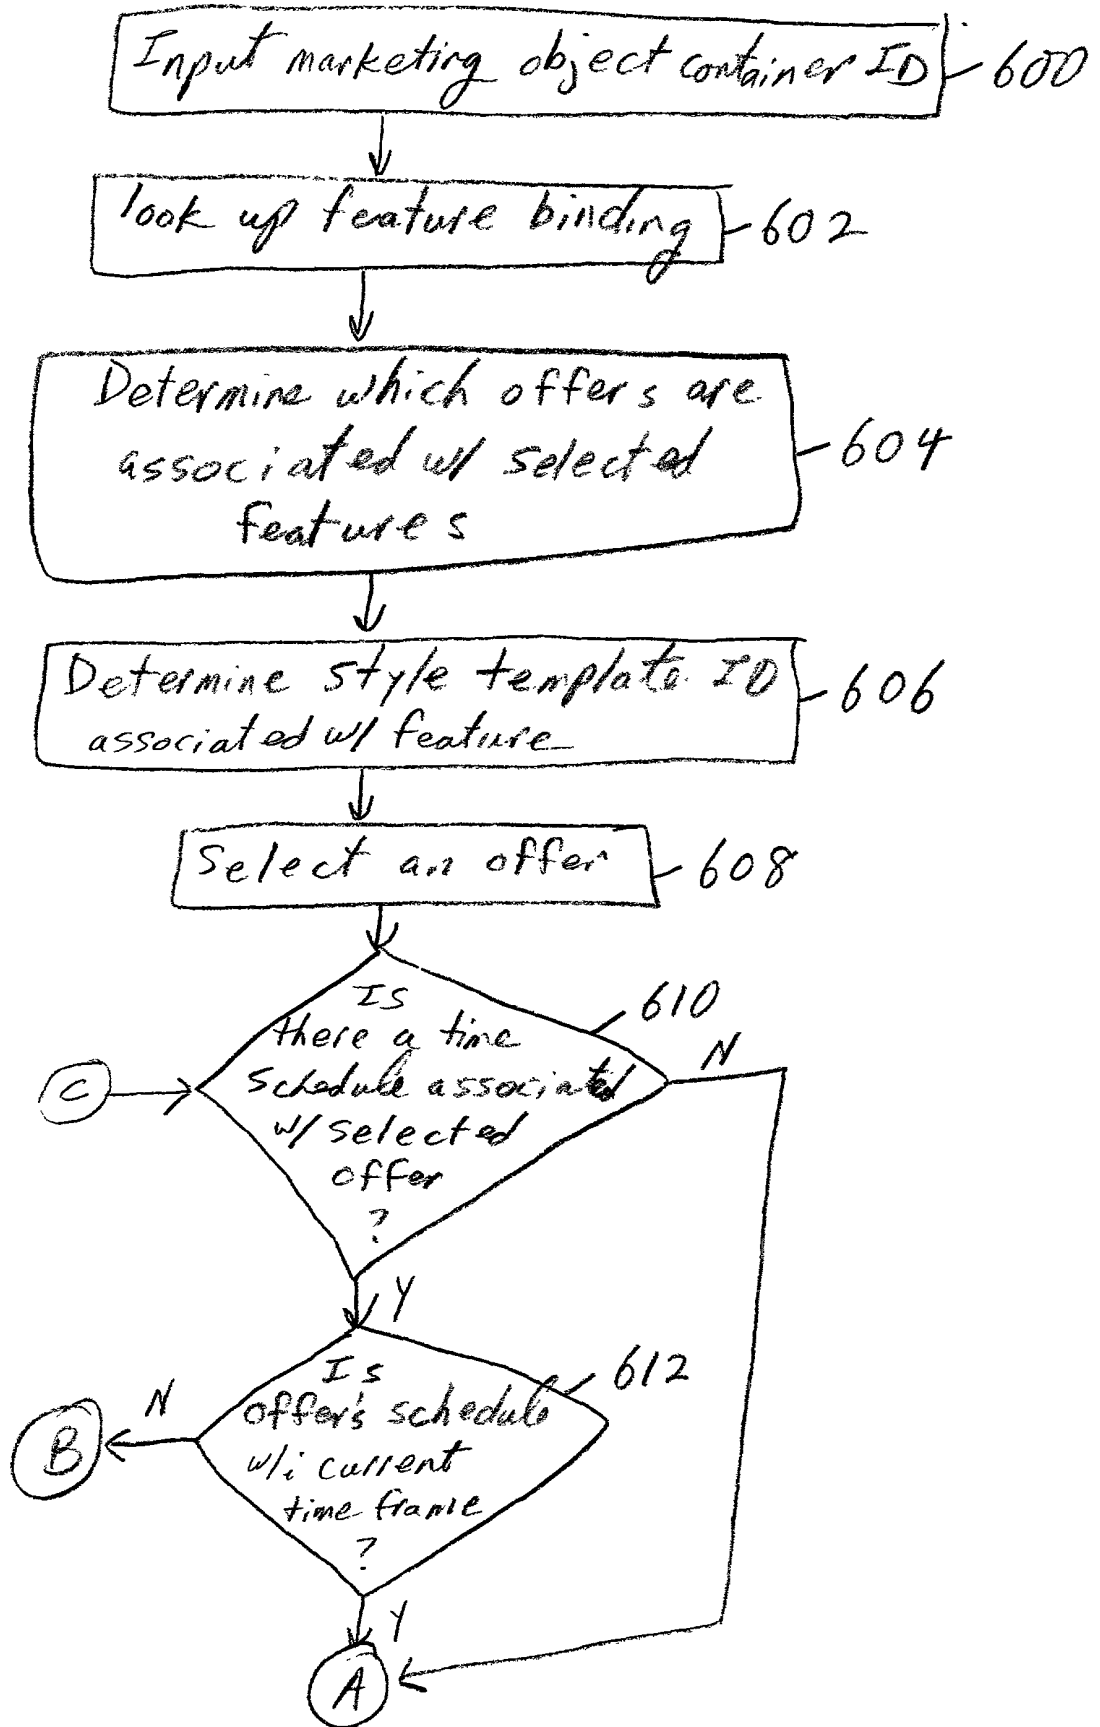 Input marketing object container ID 600
look up feature binding 602
Determine which offers are
associated w/ selected 604
features
Determine style template ID 606
associated w/ feature
Select an offer 608
Is 610
there a time
N
schedule associated
C
w/ selected
offer
?
Y
Is 612
N
offer's schedule
B
w/i current
time frame
?
Y
A